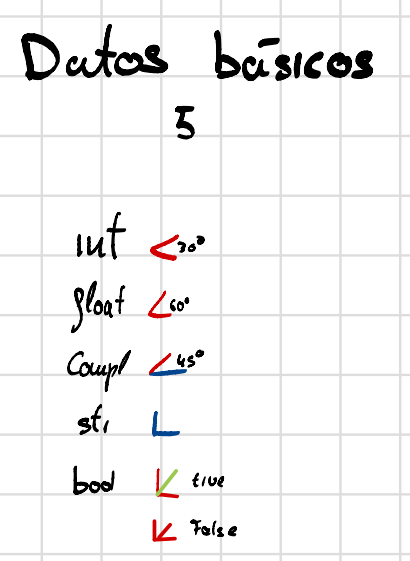 Datos básicos
5
int 30°
float 60°
Compl 45°
str
bool true
False